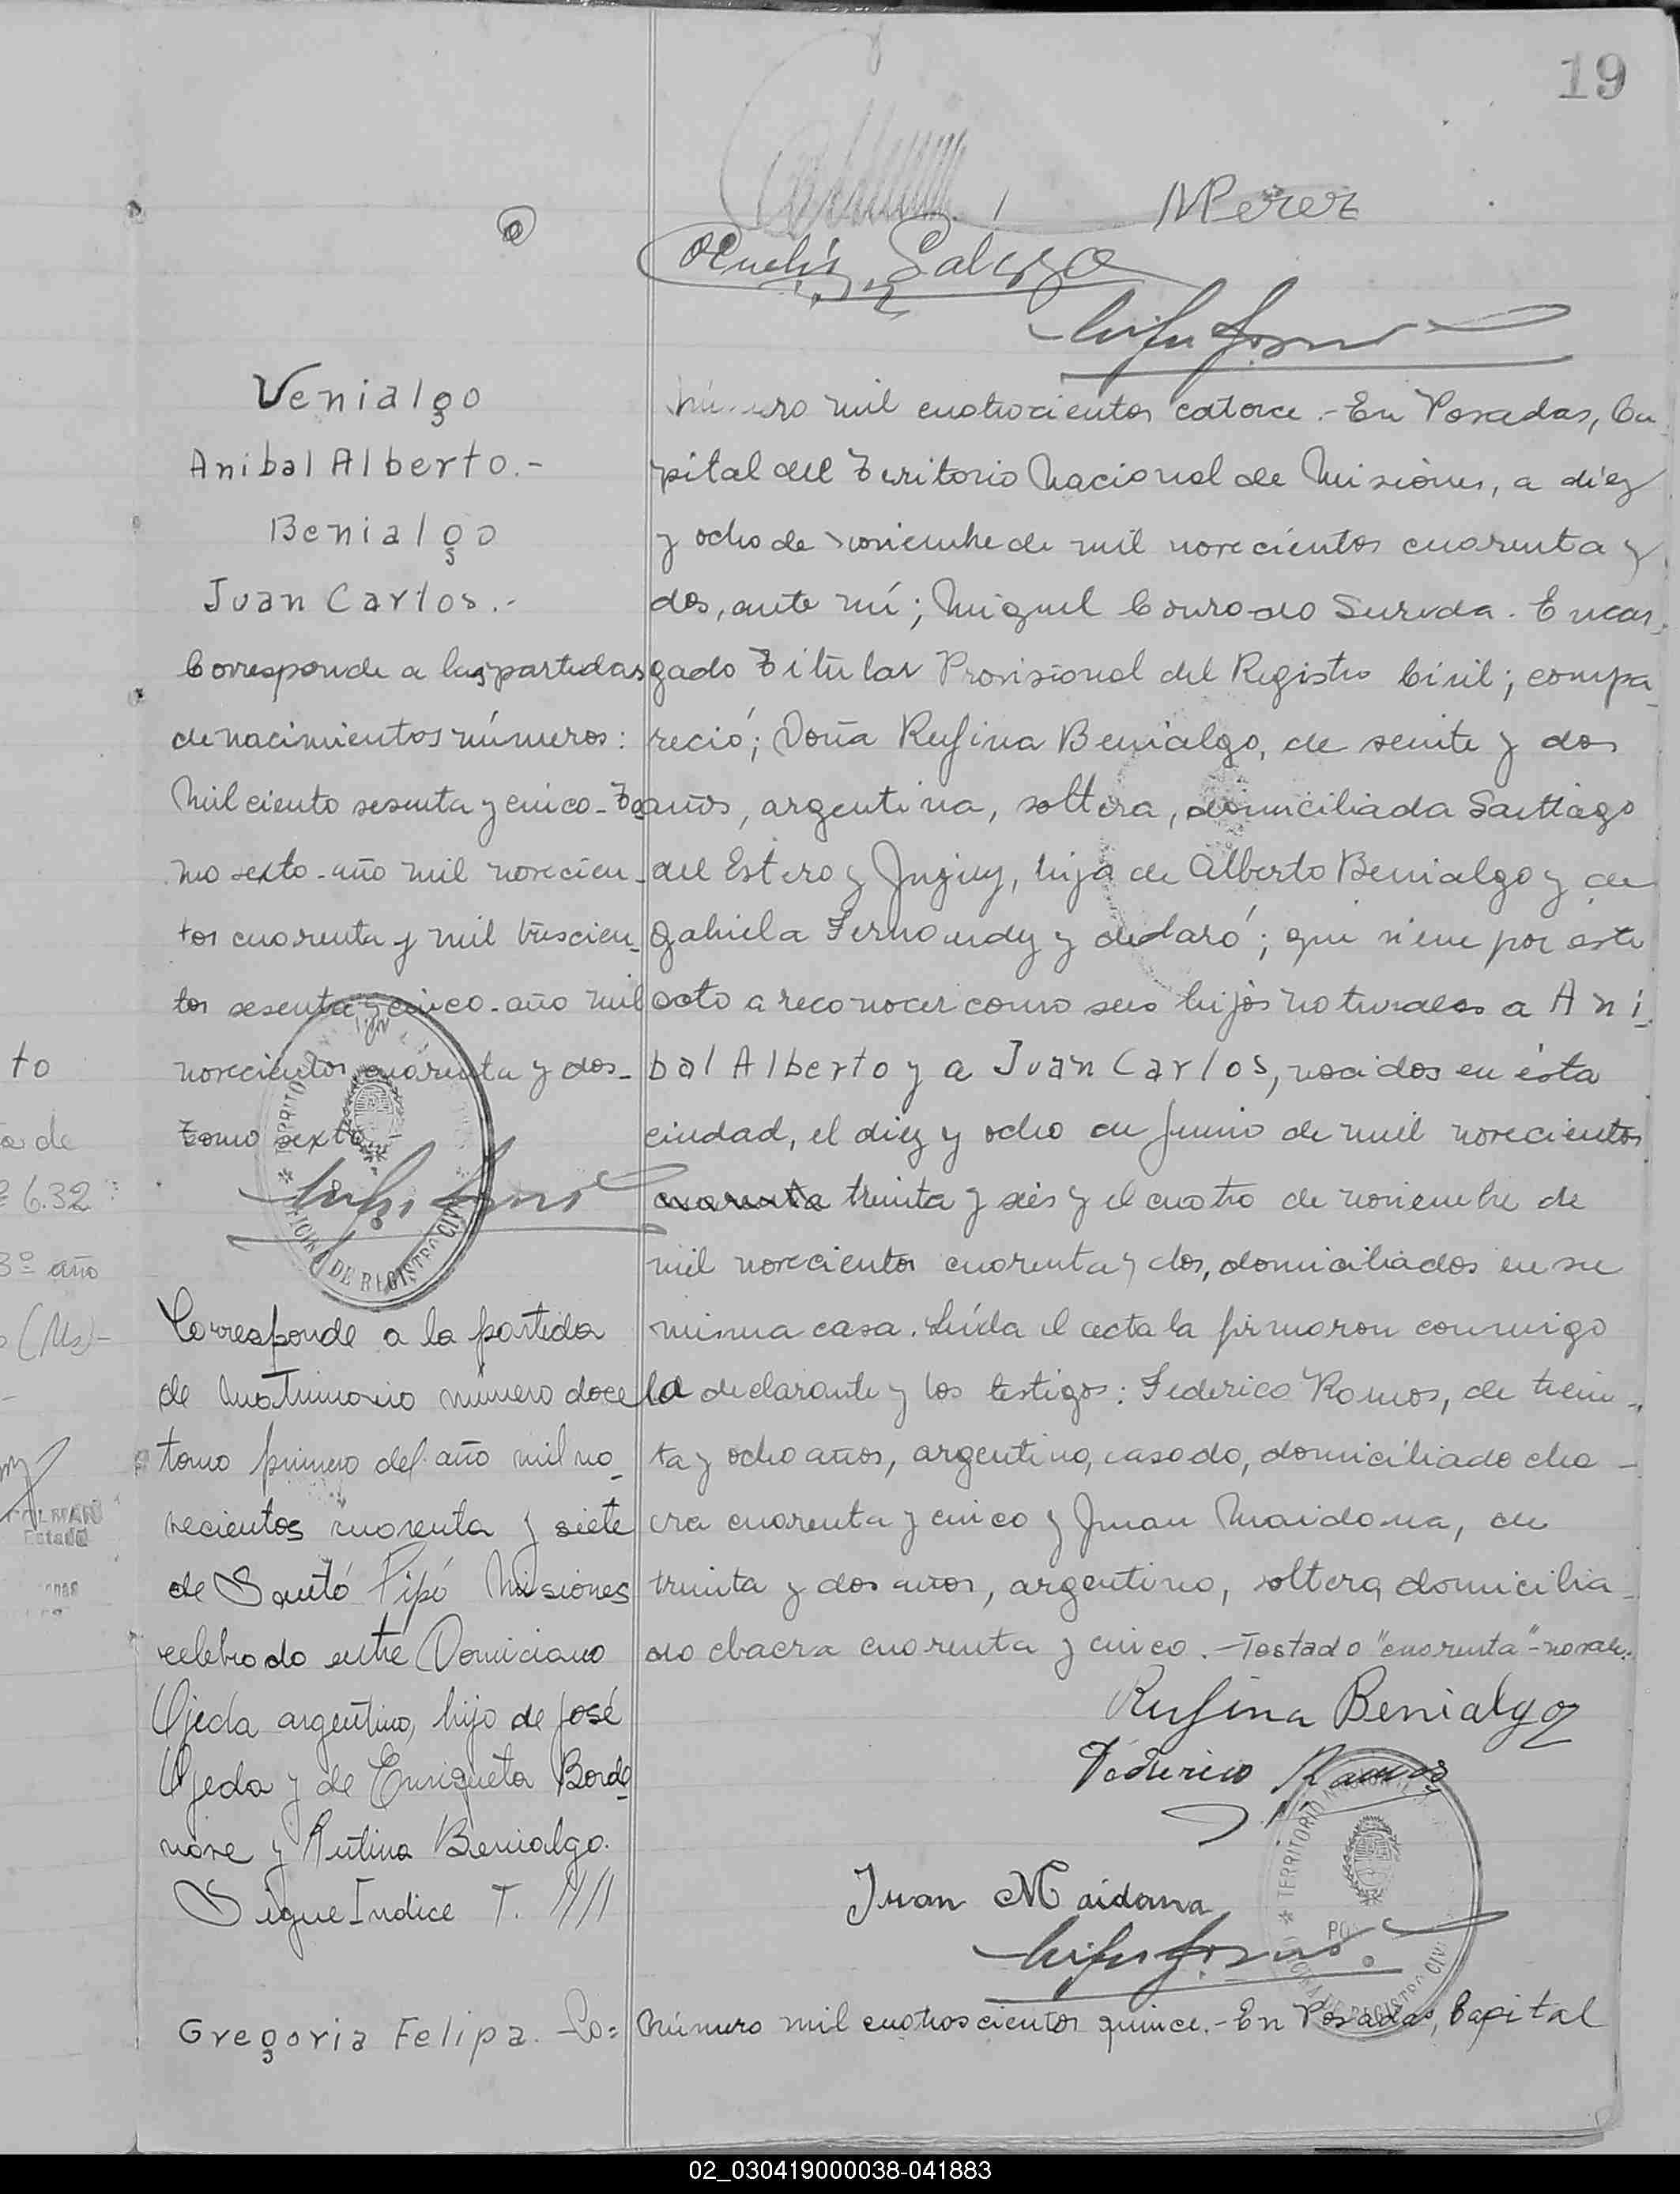 19
MPerez
Venialgo
Anibal Alberto.-
Benialgo
Juan Carlos.-
Corresponde a las partidas
de nacimientos números:
Mil ciento sesenta y cinco - To
mo sexto - año mil novecien-
tos cuarenta y mil trescien-
tos sesenta y cinco - año mil
novecientos cuarenta y dos -
tomo sexto
Corresponde a la partida
de Matrimonio número doce
tomo primero del año mil no-
vecientos cuarenta y siete
de Santo Pipó Misiones
celebrado entre Domiciano
Ojeda argentino, hijo de José
Ojeda y de Enriqueta Borde
nave y Rufina Benialgo.
Sigue Indice T.
Número mil cuatrocientos catorce.- En Posadas, Ca
pital del Territorio Nacional de Misiones, a diez
y ocho de noviembre de mil novecientos cuarenta y
dos, ante mí; Miguel Conrado Sureda. Encar-
gado Titular Provisional del Registro Civil; compa-
reció; Doña Rufina Benialgo, de veinte y dos
años, argentina, soltera, domiciliada Santiago
del Estero y Jujuy, hija de Alberto Benialgo y de
Gabriela Fernandez y declaró; que viene por este
acto a reconocer como sus hijos naturales a Aní-
bal Alberto y a Juan Carlos, nacidos en ésta
ciudad, el diez y ocho de junio de mil novecientos
cuarenta treinta y seis y el cuatro de noviembre de
mil novecientos cuarenta y dos, domiciliados en su
misma casa. Leída el acta la firmaron conmigo
la declarante y los testigos: Federico Ramos, de trein-
ta y ocho años, argentino, casado, domiciliado cha-
cra cuarenta y cinco y Juan Maidana, de
treinta y dos años, argentino, soltero, domicilia-
do chacra cuarenta y cinco.- Testado "cuarenta"- no vale.
Rufina Benialgo
Federico Ramos
Juan Maidana
Gregoria Felipa. - Co=
Número mil cuatroscientos quince.- En Posadas, Capital
TERRITORIO
OFICINA DE REGISTRO CIVIL
TERRITORIO
DE REGISTRO CIVIL
to
de
632
3º año
02_030419000038-041883